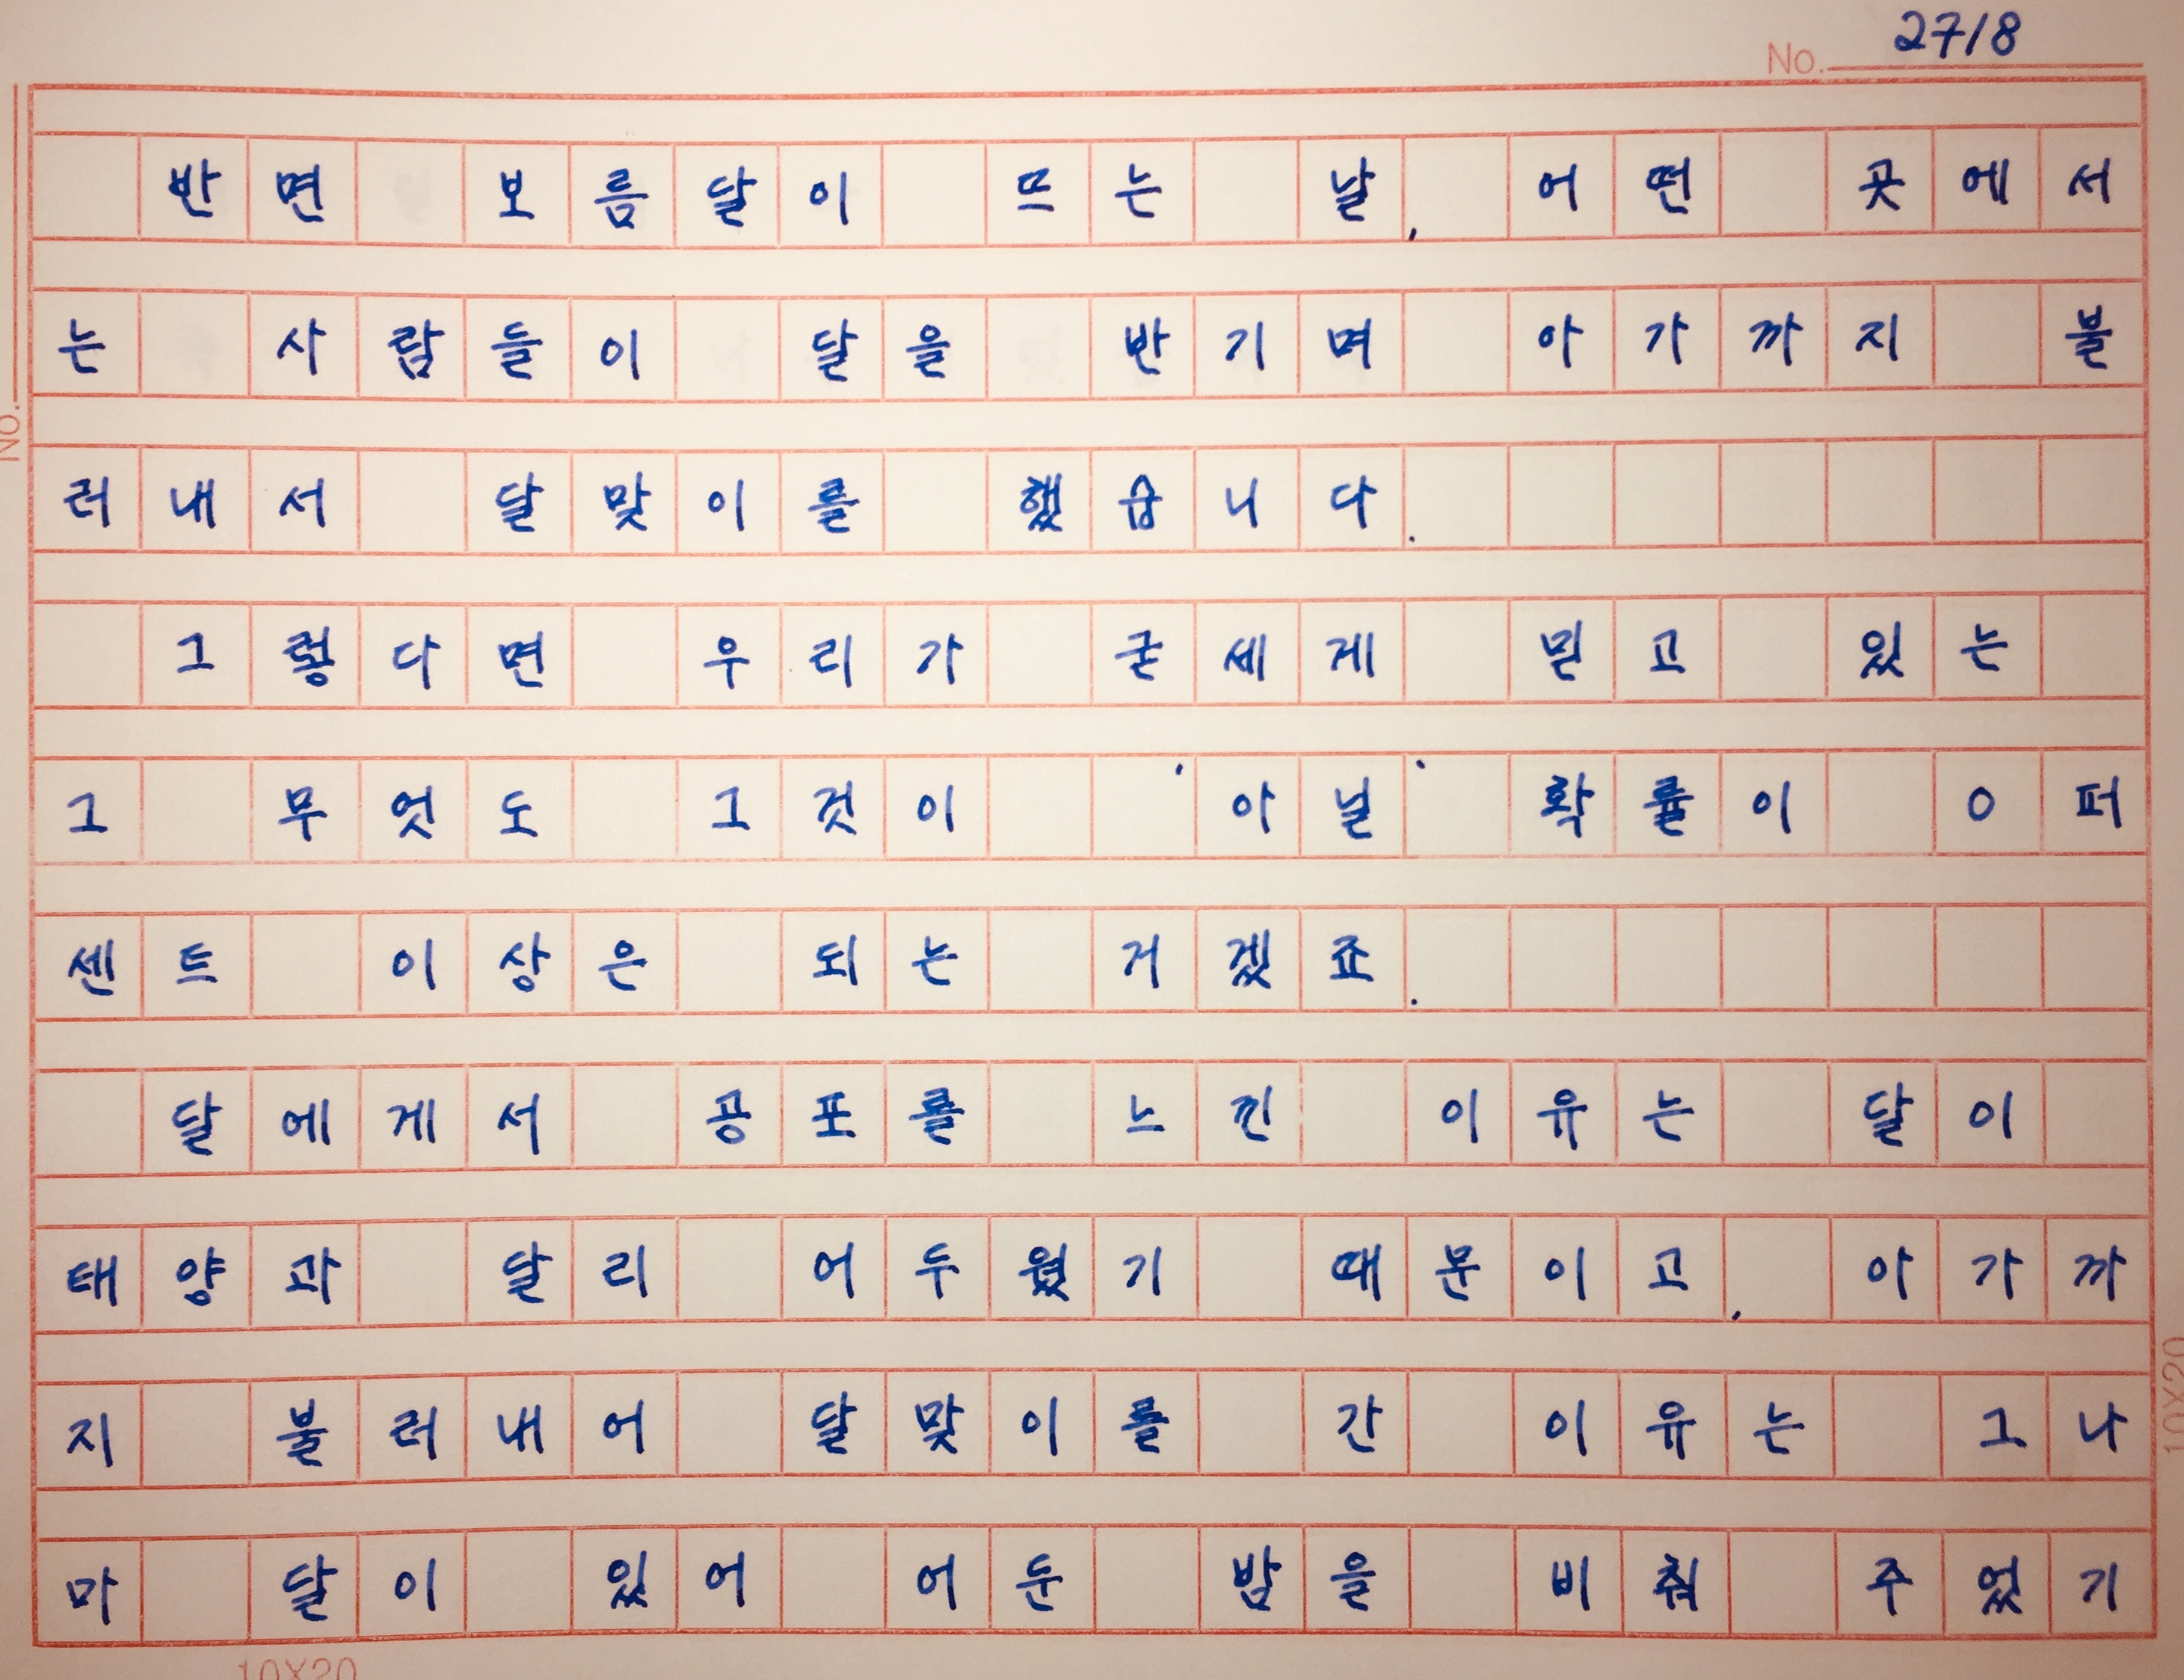 No. 27/8
반면 보름달이 뜨는 날, 어떤 곳에서
는 사람들이 달을 반기며 아가까지 불
러내서 달맞이를 했습니다.
그렇다면 우리가 굳세게 믿고 있는
그 무엇도 그것이 '아닐' 확률이 0퍼
센트 이상은 되는 거겠죠.
달에게서 공포를 느낀 이유는 달이
태양과 달리 어두웠기 때문이고, 아가까
지 불러내어 달맞이를 간 이유는 그나
마 달이 있어 어둔 밤을 비춰 주었기
10X20
No.
10X20